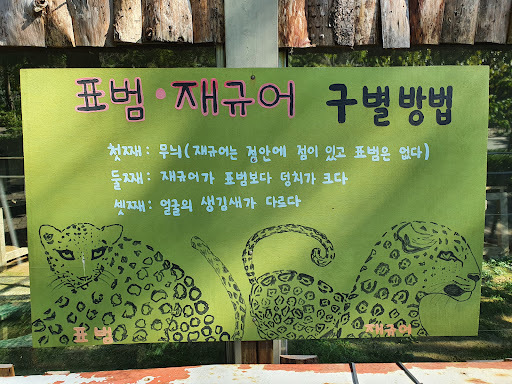 표범·재규어 구별방법
첫째: 무늬(재규어는 점안에 점이 있고 표범은 없다)
둘째: 재규어가 표범보다 덩치가 크다
셋째: 얼굴의 생김새가 다르다
표범 재규어